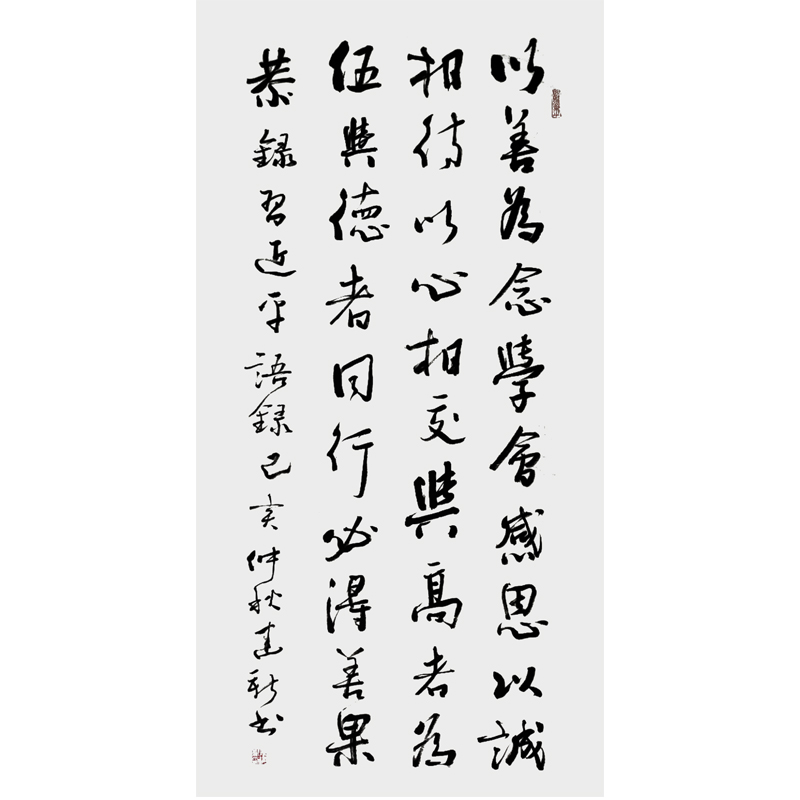 以善為念學會感恩以誠
相待以心相交與高者為
伍與德者同行必得善果
恭錄習近平語錄己亥仲秋建新書